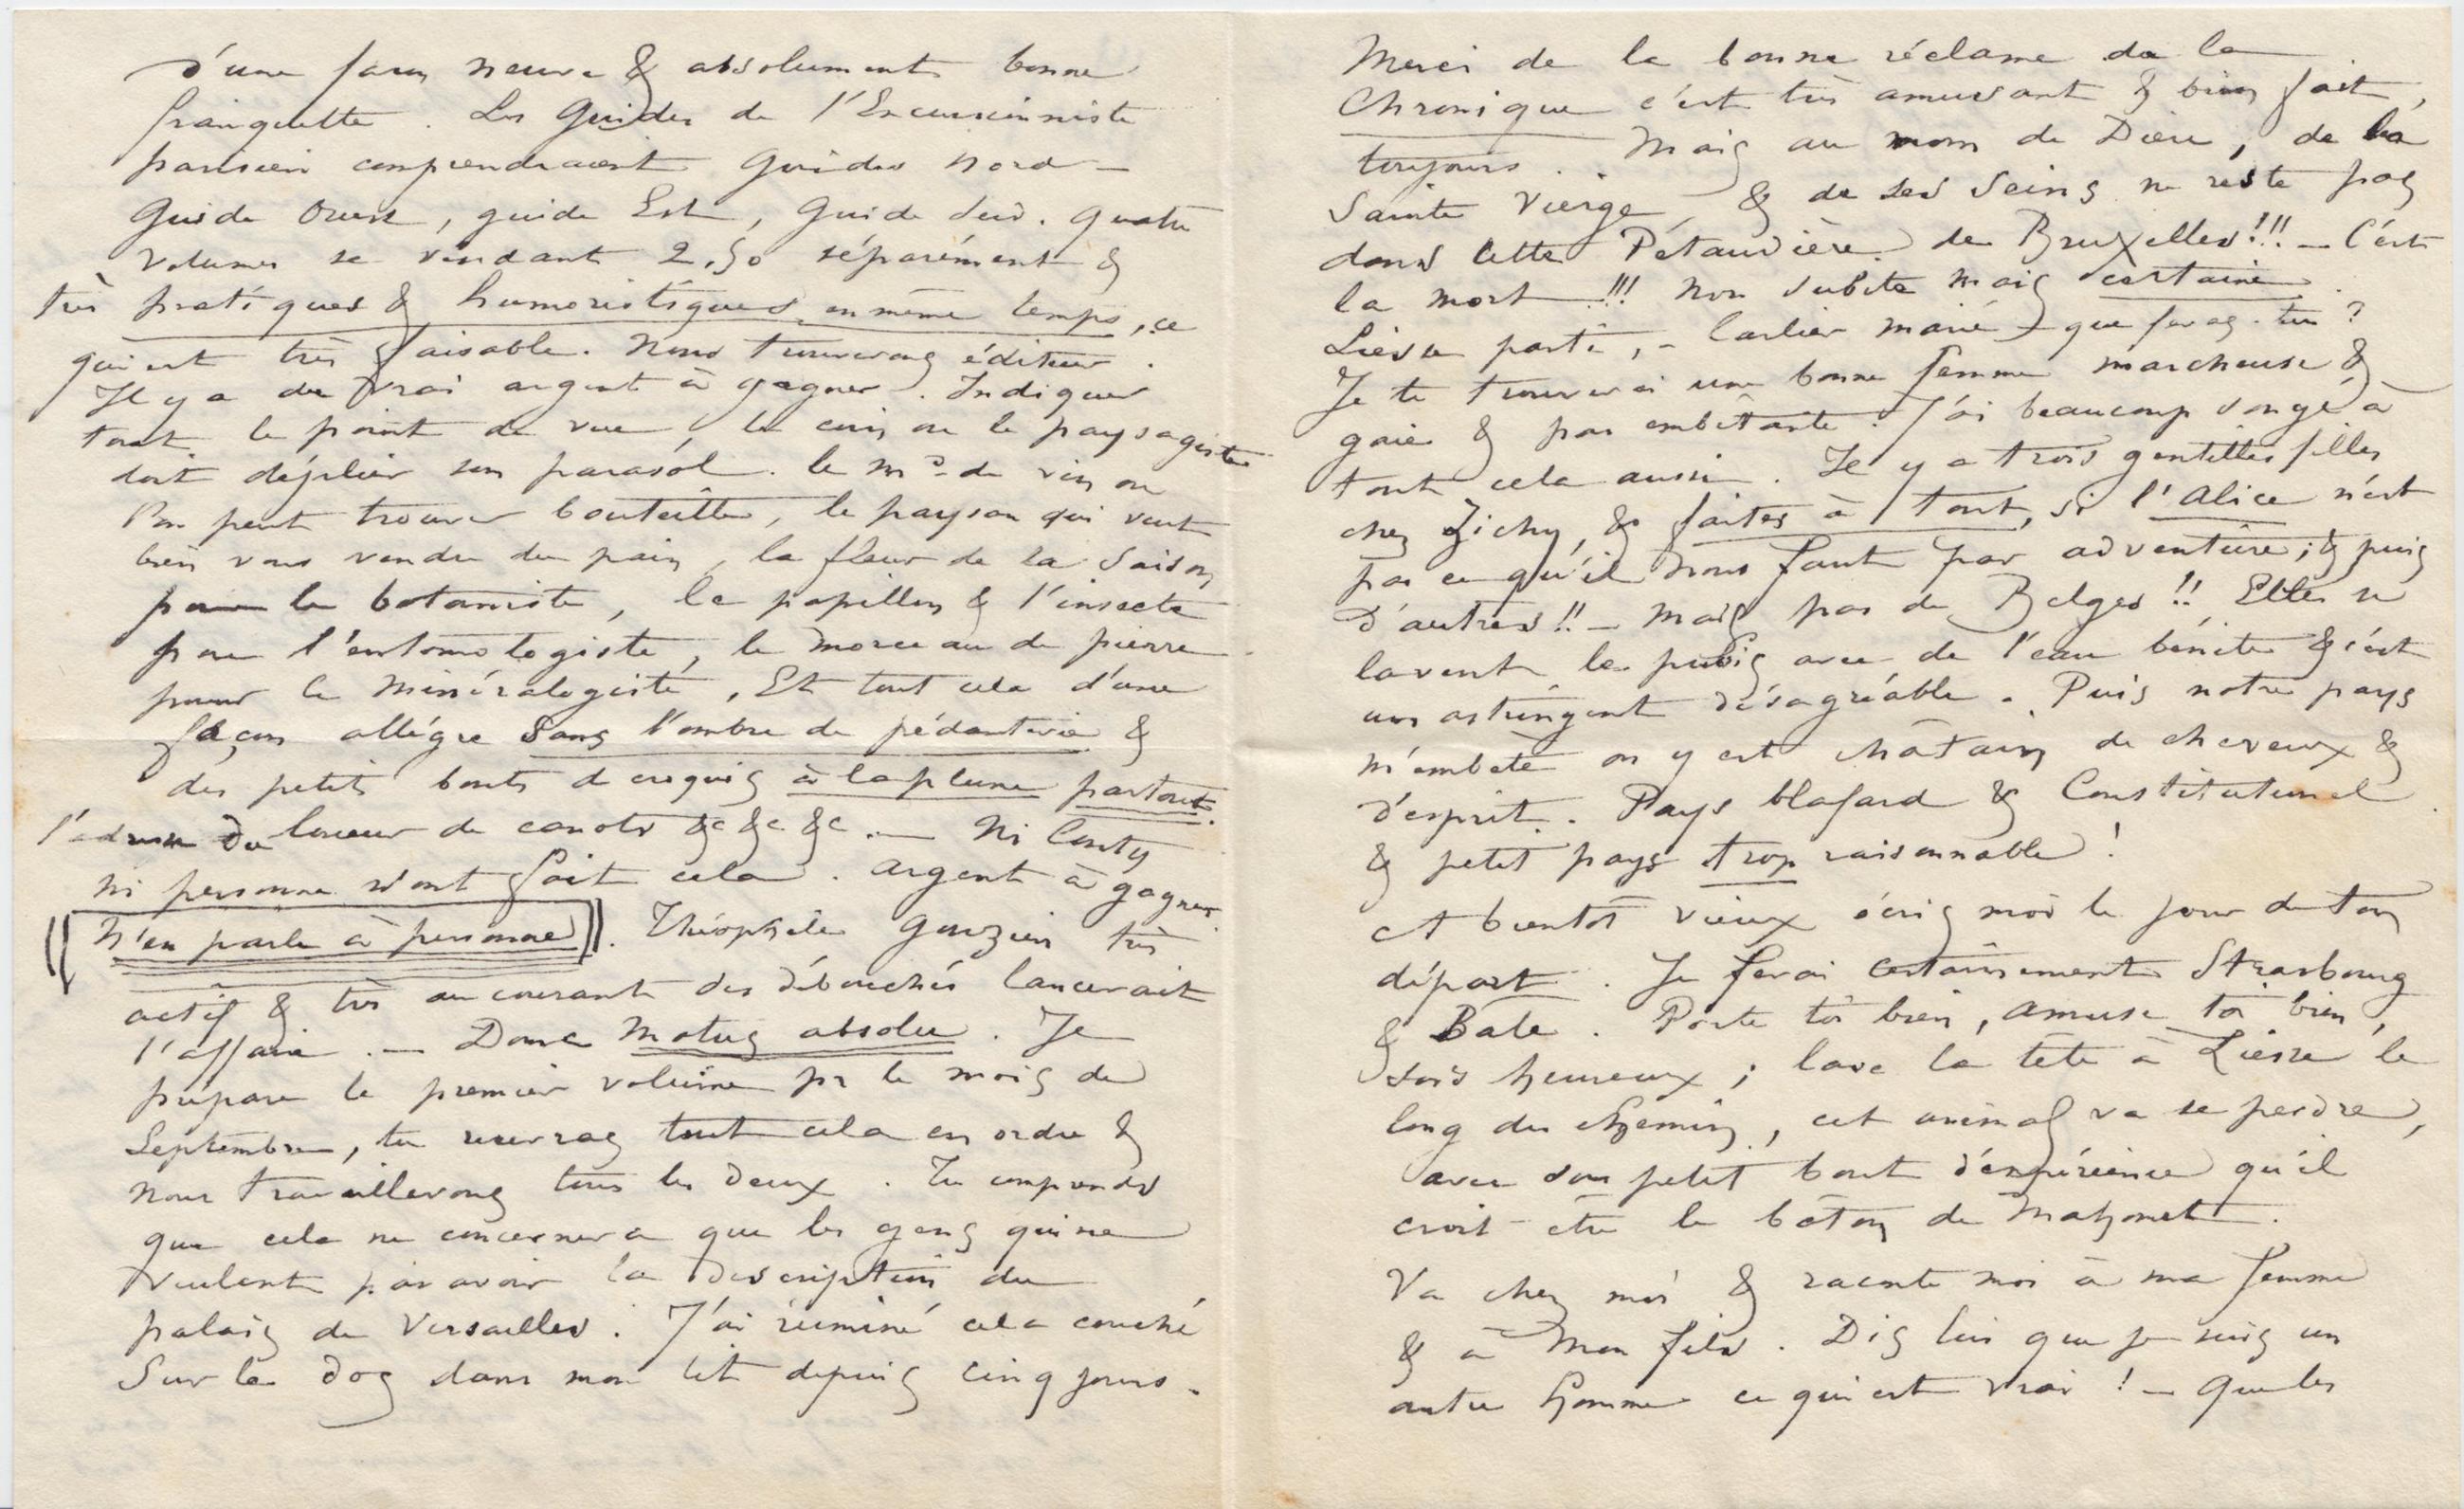 d'une façon neuve & absolument bonne
franquette. Les Guides de l'Excursionniste
parisien comprendraient Guides Nord –
Guide Ouest, guide Est, Guide Sud. Quatre
volumes se vendant 2,50 séparément &
très pratiques & humoristiques en même temps, ce
qui est très faisable. Nous trouverons éditeur.
Il y a du vrai argent à gagner. Indiquer
tout le point de vue, le coin ou le paysagiste
doit déplier son parasol. le md de vin ou
l'on peut trouver bouteille, le paysan qui veut
bien vous vendre du pain, la fleur de la saison
pour le botaniste, le papillon & l'insecte
pour l'entomologiste, le morceau de pierre
pour le minéralogiste, Et tout cela d'une
façon allègre sans l'ombre de pédanterie &
des petits bouts de croquis à la plume partout.
l'adresse du loueur de canots &c &c &c. — Ni Conty
ni personne n'ont fait cela. argent à gagner
N'en parle à personne. Théophile Gouzien très
actif & très au courant des débouchés lancerait
l'affaire. — Donc motus absolu. Je
prépare le premier volume pr le mois de
Septembre, tu reverras tout cela en ordre &
nous travaillerons tous les deux. Tu comprends
que cela ne concernera que les gens qui ne
veulent pas avoir la description du
palais de Versailles. J'ai ruminé cela couché
Sur le dos dans mon lit depuis cinq jours.
Merci de la bonne réclame de la
Chronique c'est très amusant & bien fait,
toujours. Mais au nom de Dieu, de la
Sainte Vierge & de ses seins ne reste pas
dans cette Pétaudière de Bruxelles!!! — C'est
la mort!!! Non subite mais certaine.
Liesse parti, – Carlier marié – que feras-tu?
Je te trouverai une bonne femme marcheuse &
gaie & pas embêtante. J'ai beaucoup songé à
tout cela aussi. Il y a trois gentilles filles
chez Zichy, & faites à tout, si l'Alice n'est
pas ce qu'il nous faut par adventure; & puis
d'autres!! — Mais pas de Belges!! Elles se
lavent le pubis avec de l'eau bénite & c'est
un astringent désagréable. Puis notre pays
m'embête on y est châtain de cheveux &
d'esprit. Pays blafard & Constitutionnel
& petit pays trop raisonnable!
A bientôt vieux écris moi le jour de ton
départ. Je ferai certainement Strasbourg
& Bale. Porte toi bien, amuse toi bien,
sois heureux; lave la tête à Liesse le
long du chemin, cet animal va se perdre,
avec son petit bout d'expérience qu'il
croit être le bâton de Mahomet.
Va chez moi & raconte moi à ma femme
& à mon fils. Dis lui que je suis un
autre homme ce qui est vrai! — Que les